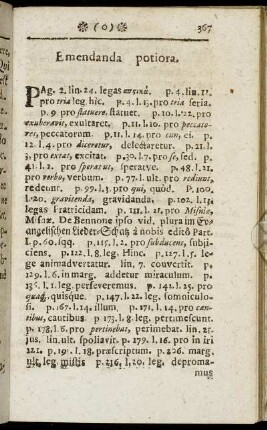 (o) 367
Emendanda potiora.
PAg. 2. lin. 24. legas p. 4. lin. 12.
pro tria leg. hic. p. 4. l. 13. pro tria seria.
p. 9. pro statuere, statuet. p. 10. l. 22. pro
exuberavit, exulceret. p. 11. l. 10. pro peccato-
res, peccatorum. p. 11. l. 14. pro cum, ei. p.
12. l. 4. pro diceretur, delectaretur. p. 21. l.
3. pro extat, excitat. p. 30. l. 7. pro se, sed. p.
41. l. 2. pro speratus, speratve. p. 48. l. 21.
pro verbo, verbum. p. 77. l. ult. pro redimus,
redeunt. p. 99. l. 3. pro qui, quòd. p. 100.
l. 20. gravitenda, gravidanda. p. 102. l. 15.
legas Fratricidam. p. 111. l. 21. pro Misnia,
Misiæ. De Bennone ipso vid. plura im Ev-
angelischen Lieder-Schatz à nobis edito Part.
I. p. 60. sqq. p. 115. l. 2. pro subducens, subji-
ciens. p. 112. l. 8. leg. Hinc. p. 127. l. 5. le-
ge animadvertatur. lin. 7. couvertit. p.
129. l. 6. in marg. addetur miraculum. p.
136. l. 1. leg. perseveremus. p. 142. l. 25. pro
quaq, quisque. p. 147. l. 22. leg. somniculo-
si. p. 167. l. 14. illum. p. 171. l. 14. pro can-
tibus, cautibus. p. 173. l. 8. leg. pertimescunt.
p. 178. l. 8. pro pertinebat, perimebat. lin. 25.
jus. lin. ult. spoliavit. p. 179. l. 16. pro in iri
122. p. 191. l. 18. præscriptum. p. 206. marg.
ult. leg. missis p. 216. l. 20. leg. deproma-
mus